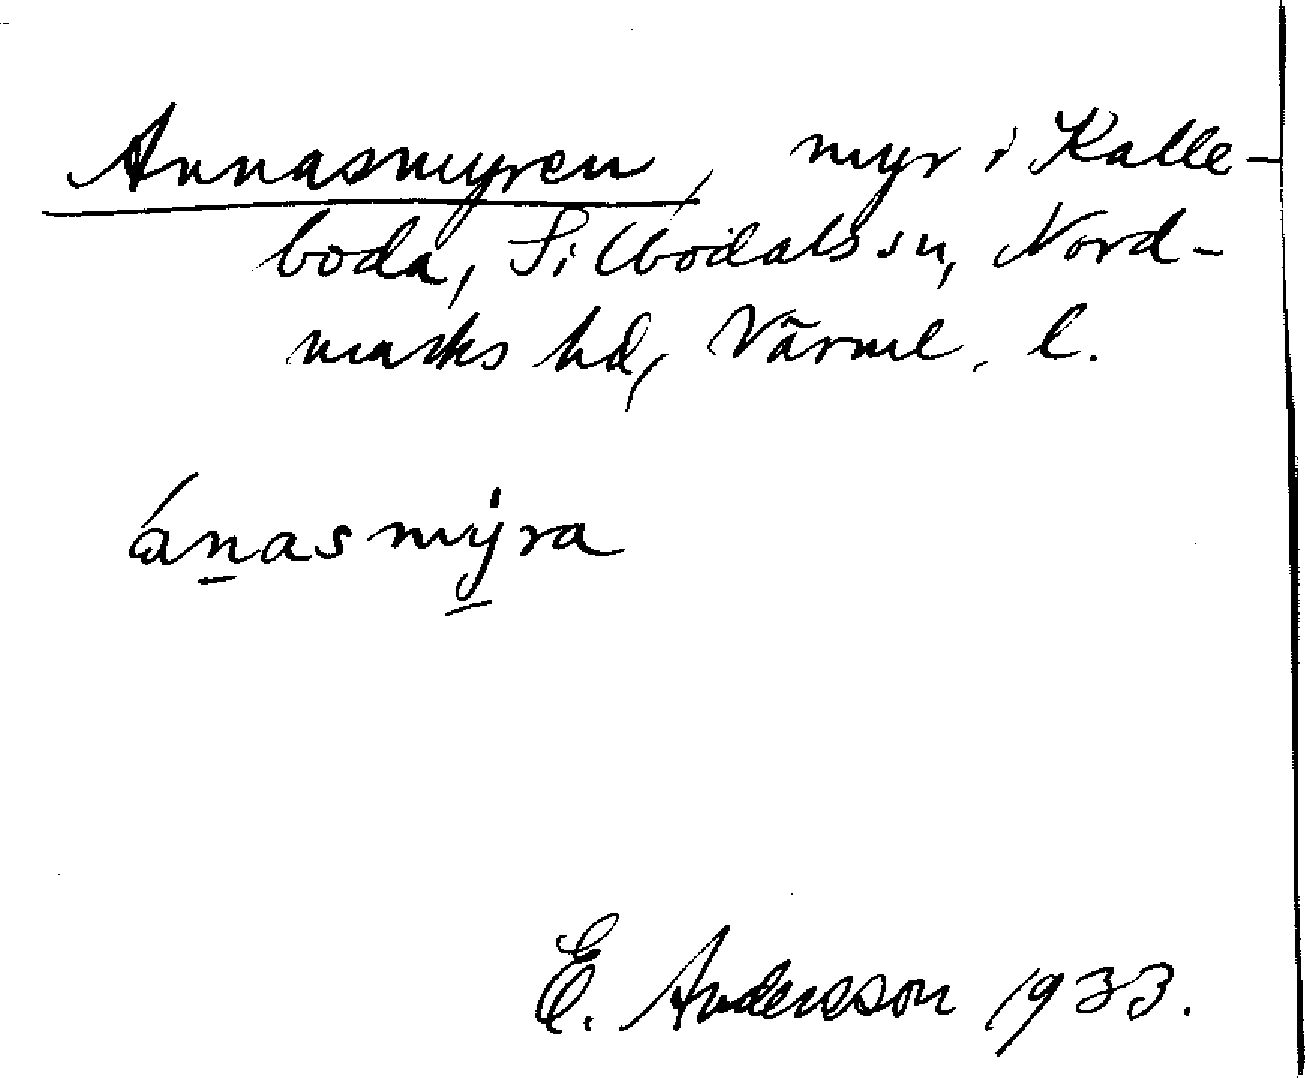 Annasmyren, myr i Kalle-
boda, Silbodals sn, Nord-
marks hd, Värml. l.
ánasmýra
E. Andersson 1933.